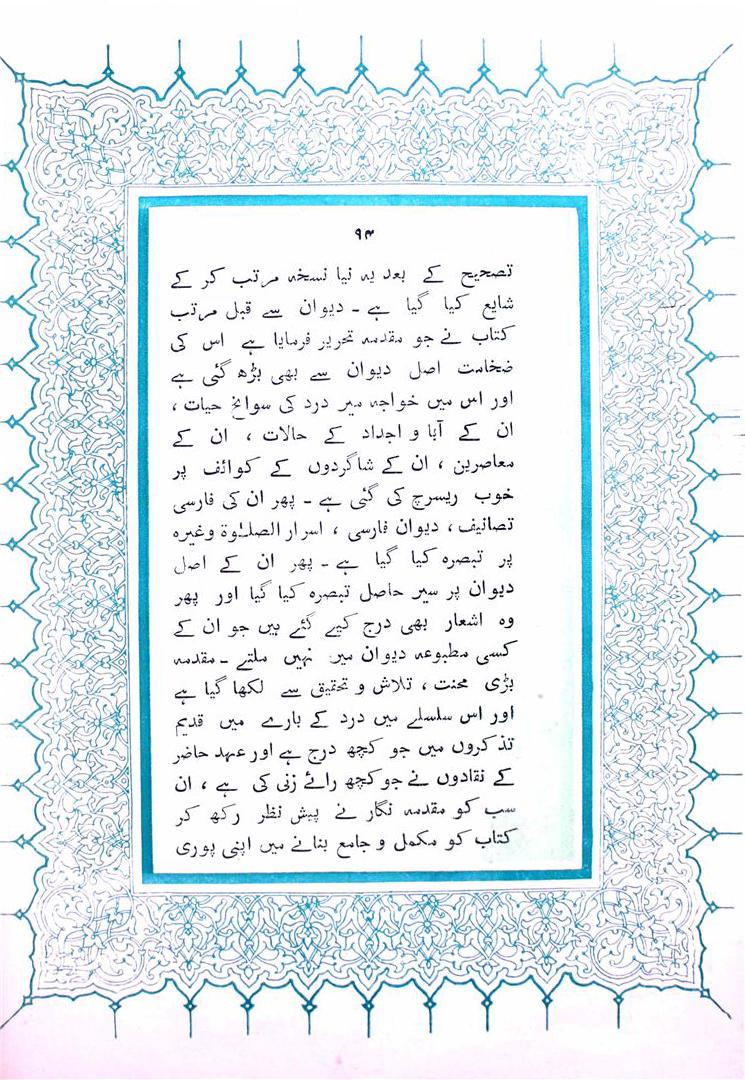 ۹۴
تصحیح کے بعد یہ نیا نسخہ مرتب کر کے
شایع کیا گیا ہے ۔ دیوان سے قبل مرتب
کتاب نے جو مقدمہ تحریر فرمایا ہے اس کی
ضخامت اصل دیوان سے بھی بڑھ گئی ہے
اور اس میں خواجہ میر درد کی سوانح حیات ،
ان کے آبا و اجداد کے حالات ، ان کے
معاصرین ، ان کے شاگردوں کے کوائف پر
خوب ریسرچ کی گئی ہے ۔ پھر ان کی فارسی
تصانیف ، دیوان فارسی ، اسرار الصلوٰۃ وغیرہ
پر تبصرہ کیا گیا ہے ۔ پھر ان کے اصل
دیوان پر سیر حاصل تبصرہ کیا گیا اور پھر
وہ اشعار بھی درج کیے گئے ہیں جو ان کے
کسی مطبوعہ دیوان میں نہیں ملتے ۔ مقدمہ
بڑی محنت ، تلاش و تحقیق سے لکھا گیا ہے
اور اس سلسلے میں درد کے بارے میں قدیم
تذکروں میں جو کچھ درج ہے اور عہد حاضر
کے نقادوں نے جو کچھ رائے زنی کی ہے ، ان
سب کو مقدمہ نگار نے پیش نظر رکھ کر
کتاب کو مکمل و جامع بنانے میں اپنی پوری